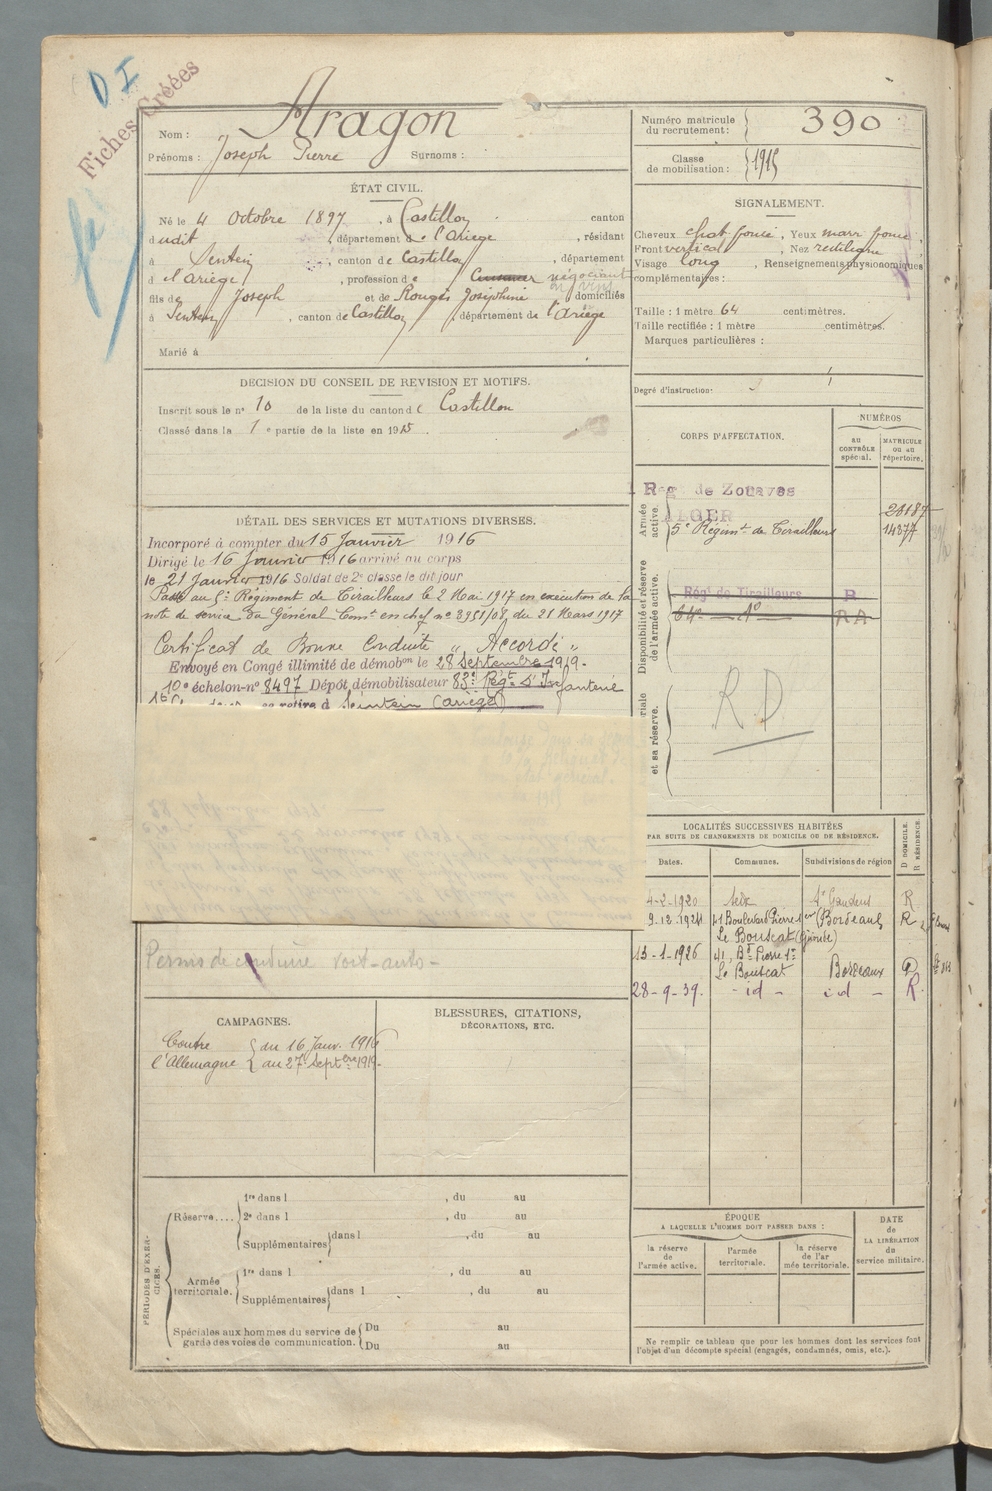 D I
Fiches Créées
Nom : Aragon
Prénoms : Joseph Pierre Surnoms :
Numéro matricule du recrutement : 390
Classe de mobilisation : 1915
ÉTAT CIVIL.
Né le 4 Octobre 1897, à Castillon canton
dudit, département de l'Ariège, résidant
à Sentein, canton de Castillon, département
d l'Ariège, profession de négociant en vins
fils de Joseph et de Rougé Joséphine domiciliés
à Sentein, canton de Castillon, département de l'Ariège
Marié à
SIGNALEMENT.
Cheveux chat. foncé, Yeux marr foncé,
Front vertical, Nez rectiligne
Visage long, Renseignements physionomiques
complémentaires :
Taille : 1 mètre 64 centimètres.
Taille rectifiée : 1 mètre centimètres.
Marques particulières :
Degré d'instruction :
DECISION DU CONSEIL DE REVISION ET MOTIFS.
Inscrit sous le n° 10 de la liste du canton de Castillon
Classé dans la 1e partie de la liste en 1915.
CORPS D'AFFECTATION.
NUMÉROS
AU CONTRÔLE spécial.
MATRICULE OU AU répertoire.
Armée active.
1 Reg. de Zouaves
ALGER
5e Régimt de Tirailleurs 14377
Disponibilité et réserve de l'armée active.
Régt de Tirailleurs R
RA
et sa réserve.
RD
DÉTAIL DES SERVICES ET MUTATIONS DIVERSES.
Incorporé à compter du 15 Janvier 1916
Dirigé le 16 Janvier 1916 arrivé au corps
le 21 Janvier 1916 Soldat de 2e classe le dit jour
Passé au 5e Régiment de Tirailleurs le 2 Mai 1917 en exécution de la
note de service du Général Comt en chef n° 3951/08 du 21 Mars 1917
Certificat de Bonne Conduite " Accordé "
Envoyé en Congé illimité de démobon le 28 Septembre 1919.
10e échelon-n° 8497 Dépôt démobilisateur 83e Régt d'Infanterie
se retire à Sentein (Ariège)
LOCALITÉS SUCCESSIVES HABITÉES
PAR SUITE DE CHANGEMENTS DE DOMICILE OU DE RÉSIDENCE.
Dates. Communes. Subdivisions de région D DOMICILE. R RÉSIDENCE.
4-2-1920 St Gaudens R
9.12.1924 41 Boulevard Pierre 1er (Bordeaux R
Le Bouscat (Gironde)
13-1-1926 41, Bd Pierre 1er
Le Bouscat Bordeaux D
28-9-39. - id - id - R
Permis de conduire voit-auto -
CAMPAGNES.
Contre l'Allemagne { du 16 Janv. 1916
{ au 27 Septbre 1919.
BLESSURES, CITATIONS,
DÉCORATIONS, ETC.
PÉRIODES D'EXERCICES.
Réserve.... 1re dans l , du au
2e dans l , du au
Supplémentaires dans l , du au
Armée territoriale. 1re dans l , du au
Supplémentaires dans l , du au
Spéciales aux hommes du service de garde des voies de communication. Du au
Du au
ÉPOQUE
A LAQUELLE L'HOMME DOIT PASSER DANS :
la réserve de l'armée active.
l'armée territoriale.
la réserve de l'armée territoriale.
DATE de LA LIBÉRATION du service militaire.
Ne remplir ce tableau que pour les hommes dont les services font
l'objet d'un décompte spécial (engagés, condamnés, omis, etc.).